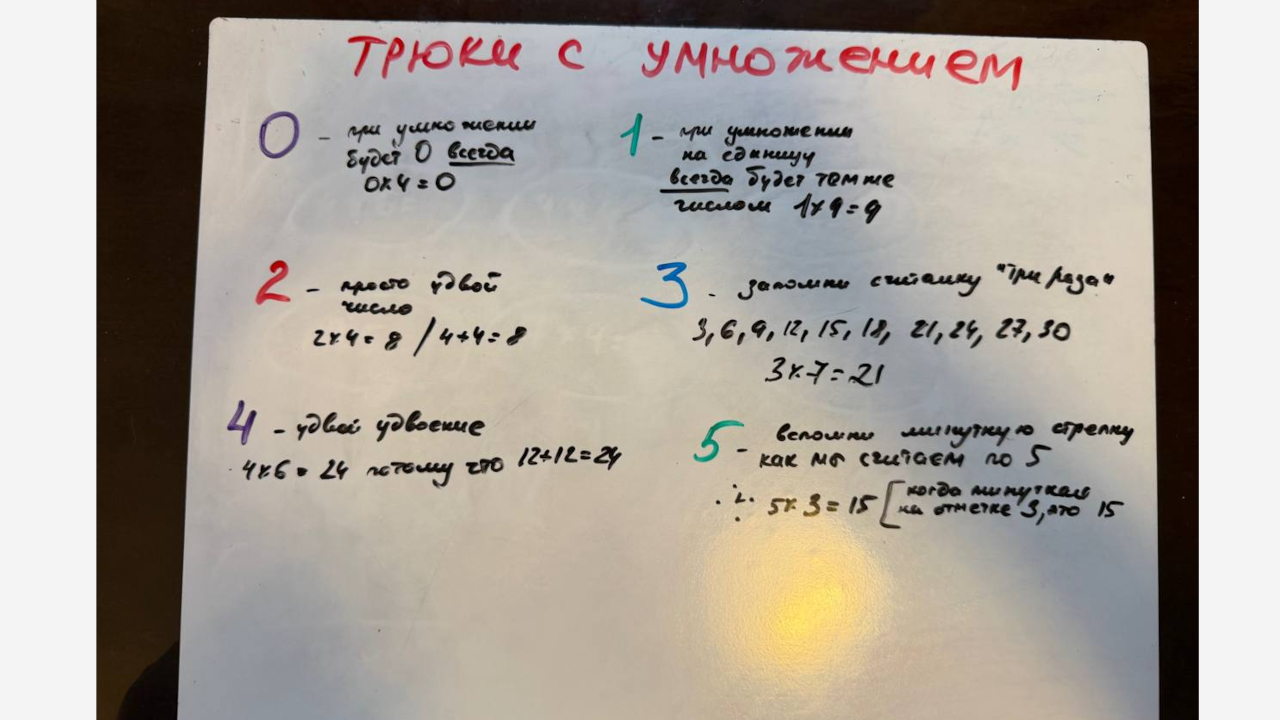 ТРЮКИ С УМНОЖЕНИЕМ
0 - при умножении
будет 0 всегда
0×4=0
1 - при умножении
на единицу
всегда будет тем же
числом 1×9=9
2 - просто удвой
число
2×4=8 / 4+4=8
3 - запомни считалку "три раза"
3, 6, 9, 12, 15, 18, 21, 24, 27, 30
3×7=21
4 - удвой удвоение
4×6=24 потому что 12+12=24
5 - вспомни минутную стрелку
как мы считаем по 5
5×3=15 [когда минутная
на отметке 3, это 15